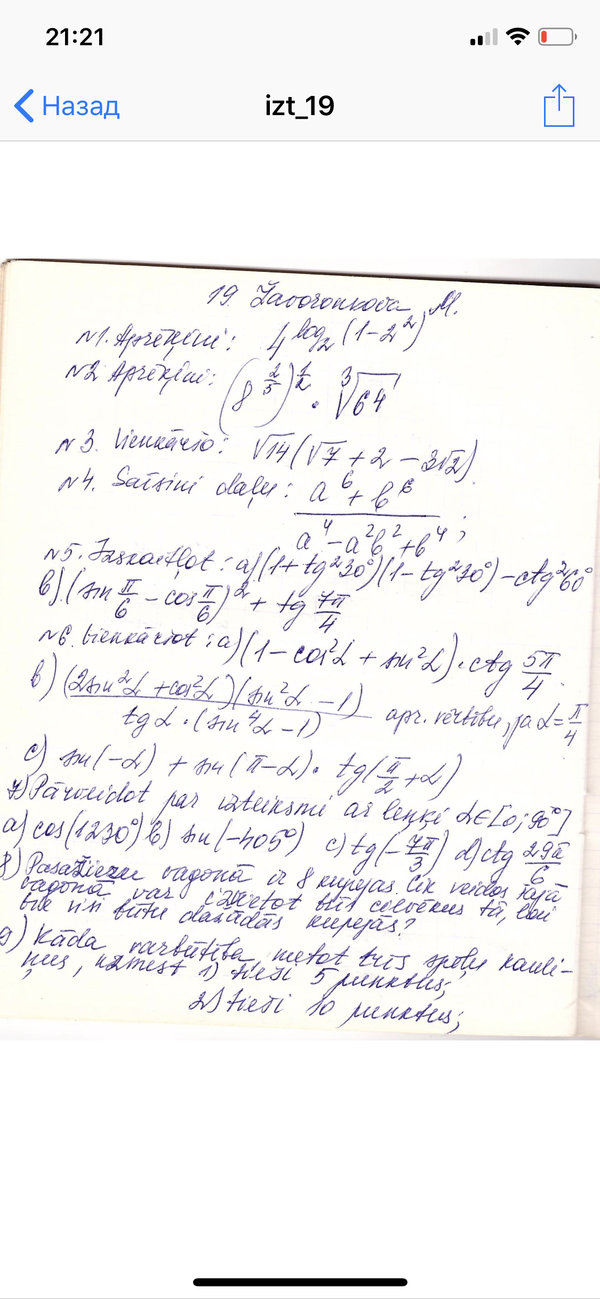 21:21
Назад
izt_19
19. Zavoronkova M.
N1. Aprēķini: 4^{log₂(1-2²)}
N2 Aprēķini: (8^{2/5})^{1/2} · ∛64
N3. Vienkāršo: √14(√7 + 2 - 3√2)
N4. Saīsini daļu: (a⁶ + b⁶)/(a⁴ - a²b² + b⁴);
N5. Izskaitļot: a) (1 + tg²30°)(1 - tg²30°) - ctg²60°
b) (sin π/6 - cos π/6)² + tg 7π/4
N6. Vienkāršot: a) (1 - cos²α + sin²α) · ctg 5π/4.
b) (2sin²α + cos²α)(sin²α - 1)/(tgα · (sin⁴α - 1)) apr. vērtību, ja α = π/4
c) sin(-α) + sin(π - α) · tg(π/2 + α)
7) Pārveidot par izteiksmi ar leņķi α∈[0; 90°]
a) cos(1230°) b) sin(-405°) c) tg(-7π/3) d) ctg 29π/6
8) Pasažieru vagonā ir 8 kupejas. Cik veidos šajā
vagonā var izvietot trīs cilvēkus tā, lai
tie visi būtu dažādās kupejās?
9) Kāda varbūtība, metot trīs spēļu kauli-
ņus, uzmest 1) tieši 5 punktus;
2) tieši 10 punktus;